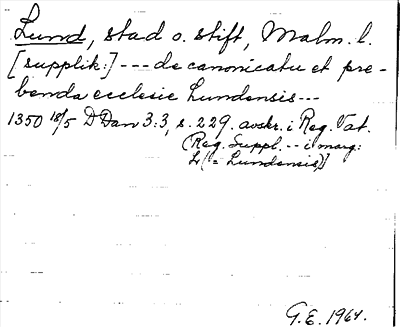 Lund, stad o. stift, Malm. l.
[supplik:] --- de canonicatu et pre-
benda ecclesie Lundensis ---
1350 18/5 DDan 3:3, s. 229. avskr. i Reg. Vat.
(Reg. Suppl. -- i marg:
L (= Lundensis)]
G.E. 1964.